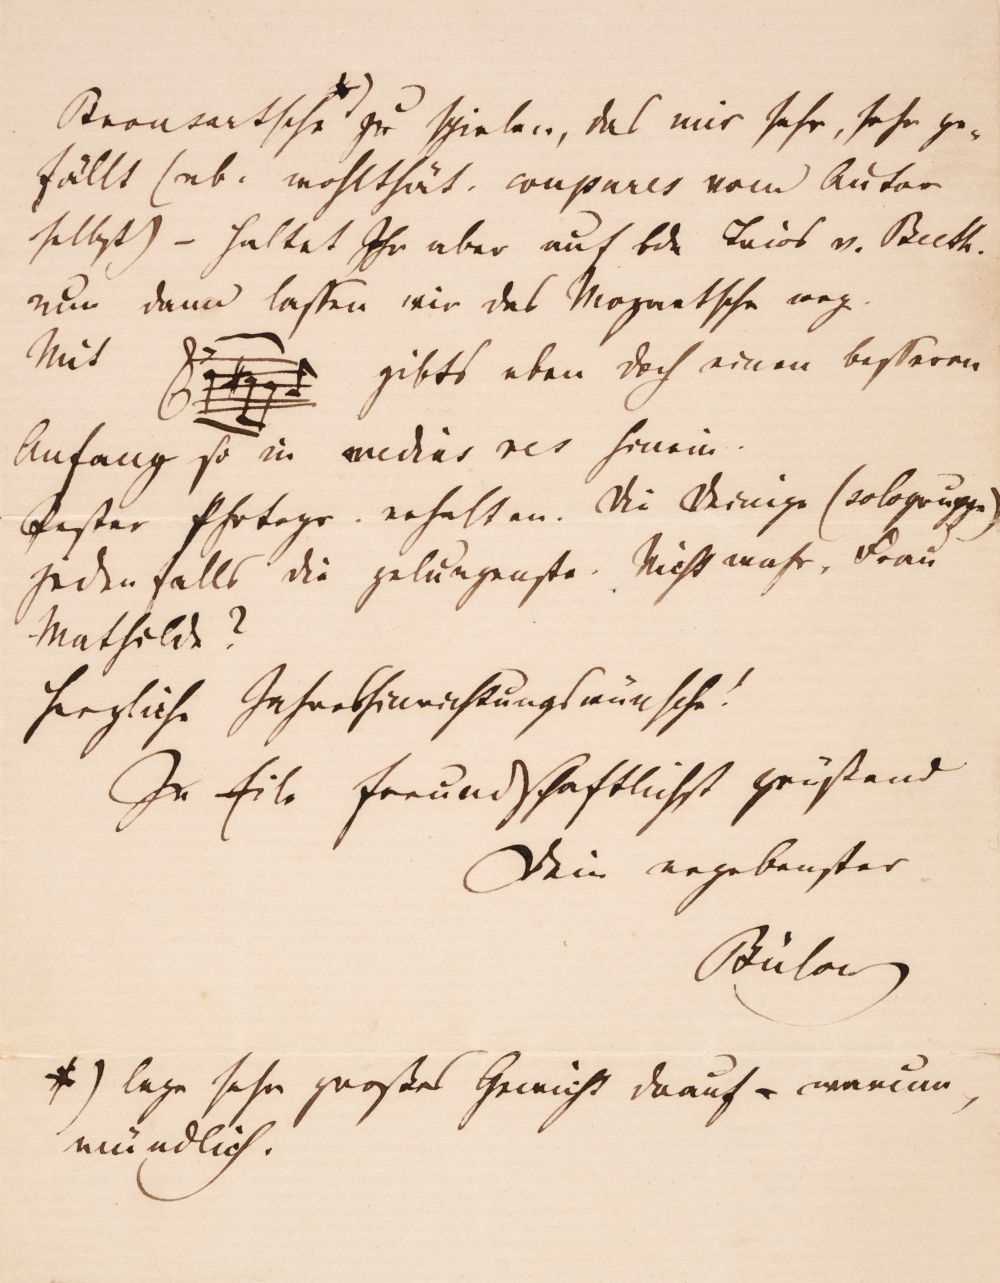 Bronsartsche *) zu spielen, das mir sehr, sehr ge-
fällt (nb. wohlthät. coupures vom Autor
selbst) – haltet Ihr aber auf bde Trios v. Beeth.
nun dann lassen wir das Mozartsche weg.
Mit gibts eben doch einen besseren
Anfang so in medias res hinein.
Pester Photogr. erhalten. Die Deinige (Sologruppe)
jedenfalls die gelungenste. Nicht wahr, Frau
Mathilde?
Herzliche Jahreshinrichtungswünsche!
In Eile freundschaftlichst grüßend
Dein ergebenster
Bülow
*) lege sehr großes Gewicht drauf – warum,
mündlich.